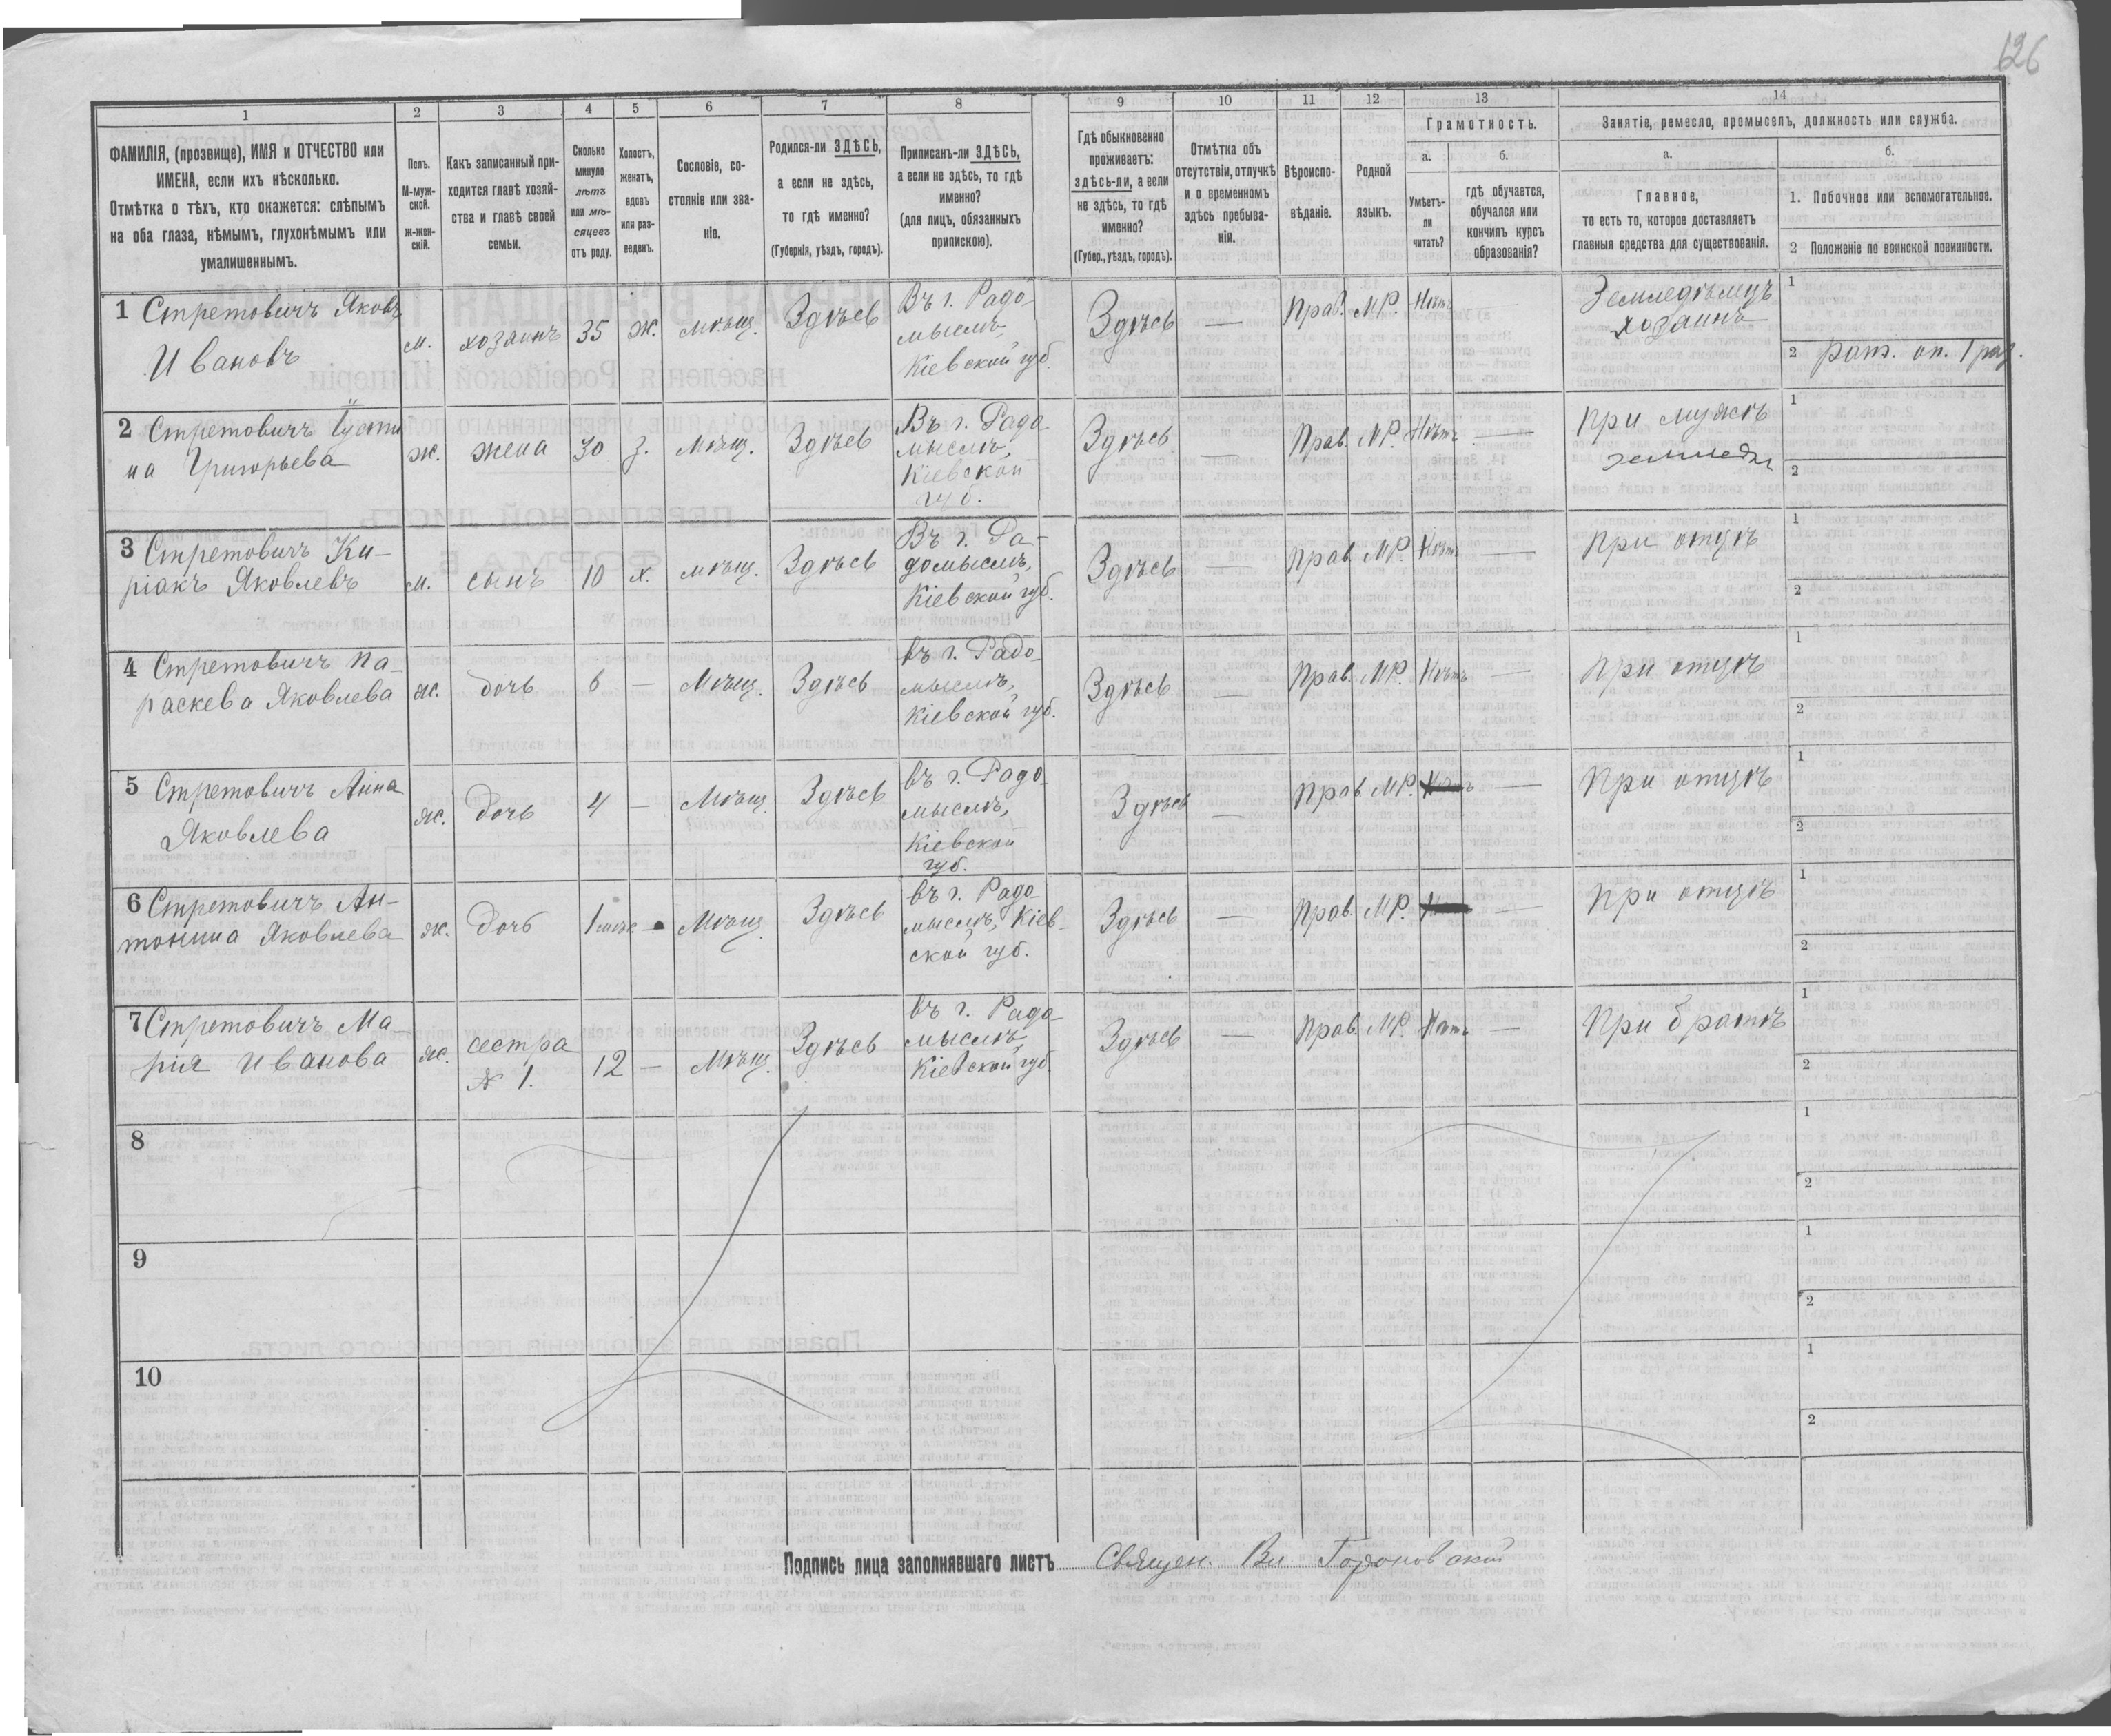 126
1
2
3
4
5
6
7
8
9
10
11
12
13
14
ФАМИЛІЯ, (прозвище), ИМЯ и ОТЧЕСТВО или
ИМЕНА, если ихъ нѣсколько.
Отмѣтка о тѣхъ, кто окажется: слѣпымъ
на оба глаза, нѣмымъ, глухонѣмымъ или
умалишеннымъ.
Полъ.
М-муж-
ской.
Ж-жен-
скій.
Какъ записанный при-
ходится главѣ хозяй-
ства и главѣ своей
семьи.
Сколько
минуло
лѣтъ
или мѣ-
сяцевъ
отъ роду.
Холостъ,
женатъ,
вдовъ
или раз-
веденъ.
Сословіе, со-
стояніе или зва-
ніе.
Родился-ли ЗДѢСЬ,
а если не здѣсь,
то гдѣ именно?
(Губернія, уѣздъ, городъ).
Приписанъ-ли ЗДѢСЬ,
а если не здѣсь, то гдѣ
именно?
(для лицъ, обязанныхъ
припискою).
Гдѣ обыкновенно
проживаетъ:
здѣсь-ли, а если
не здѣсь, то гдѣ
именно?
(Губер., уѣздъ, городъ).
Отмѣтка объ
отсутствіи, отлучкѣ
и о временномъ
здѣсь пребыва-
ніи.
Вѣроиспо-
вѣданіе.
Родной
языкъ.
Грамотность.
а.
Умѣетъ-
ли
читать?
б.
гдѣ обучается,
обучался или
кончилъ курсъ
образованія?
Занятіе, ремесло, промыселъ, должность или служба.
а.
Главное,
то есть то, которое доставляетъ
главныя средства для существованія.
б.
1. Побочное или вспомогательное.
2 Положеніе по воинской повинности.
1 Стретовичъ Яковъ
Ивановъ
м. хозяинъ 35 ж. мѣщ. Здѣсь
Въ г. Радо-
мыслѣ,
Кіевской губ.
Здѣсь — Прав. МР. Нѣтъ —
Земледѣлецъ
хозяинъ
1
2 рат. оп. 1 раз.
2 Стретовичъ Іусти
на Григорьева
ж. жена 30 з. мѣщ. Здѣсь
Въ г. Радо-
мыслѣ,
Кіевской
губ.
Здѣсь — Прав. МР. Нѣтъ —
При мужѣ
1
2
3 Стретовичъ Ки-
ріакъ Яковлевъ
м. сынъ 10 х. мѣщ. Здѣсь
Въ г. Ра-
домыслѣ,
Кіевской губ.
Здѣсь — Прав. МР. Нѣтъ —
При отцѣ
1
2
4 Стретовичъ Па-
раскева Яковлева
ж. дочь 6 — Мѣщ. Здѣсь
въ г. Радо-
мыслѣ,
Кіевской губ.
Здѣсь — Прав. МР. Нѣтъ —
При отцѣ
1
2
5 Стретовичъ Анна
Яковлева
ж. дочь 4 — Мѣщ. Здѣсь
въ г. Радо-
мыслѣ,
Кіевской
губ.
Здѣсь — Прав. МР. —
При отцѣ
1
2
6 Стретовичъ Ан-
тонина Яковлева
ж. дочь 1 мѣс. — Мѣщ. Здѣсь
въ г. Радо-
мыслѣ, Кіев-
ской губ.
Здѣсь — Прав. МР. —
При отцѣ
1
2
7 Стретовичъ Ма-
рія Иванова
ж. сестра
№ 1.
12 — Мѣщ. Здѣсь
въ г. Радо-
мыслѣ,
Кіевской губ.
Здѣсь — Прав. МР. Нѣтъ —
При братѣ
1
2
8
1
2
9
1
2
10
1
2
Подпись лица заполнявшаго листъ Священ.